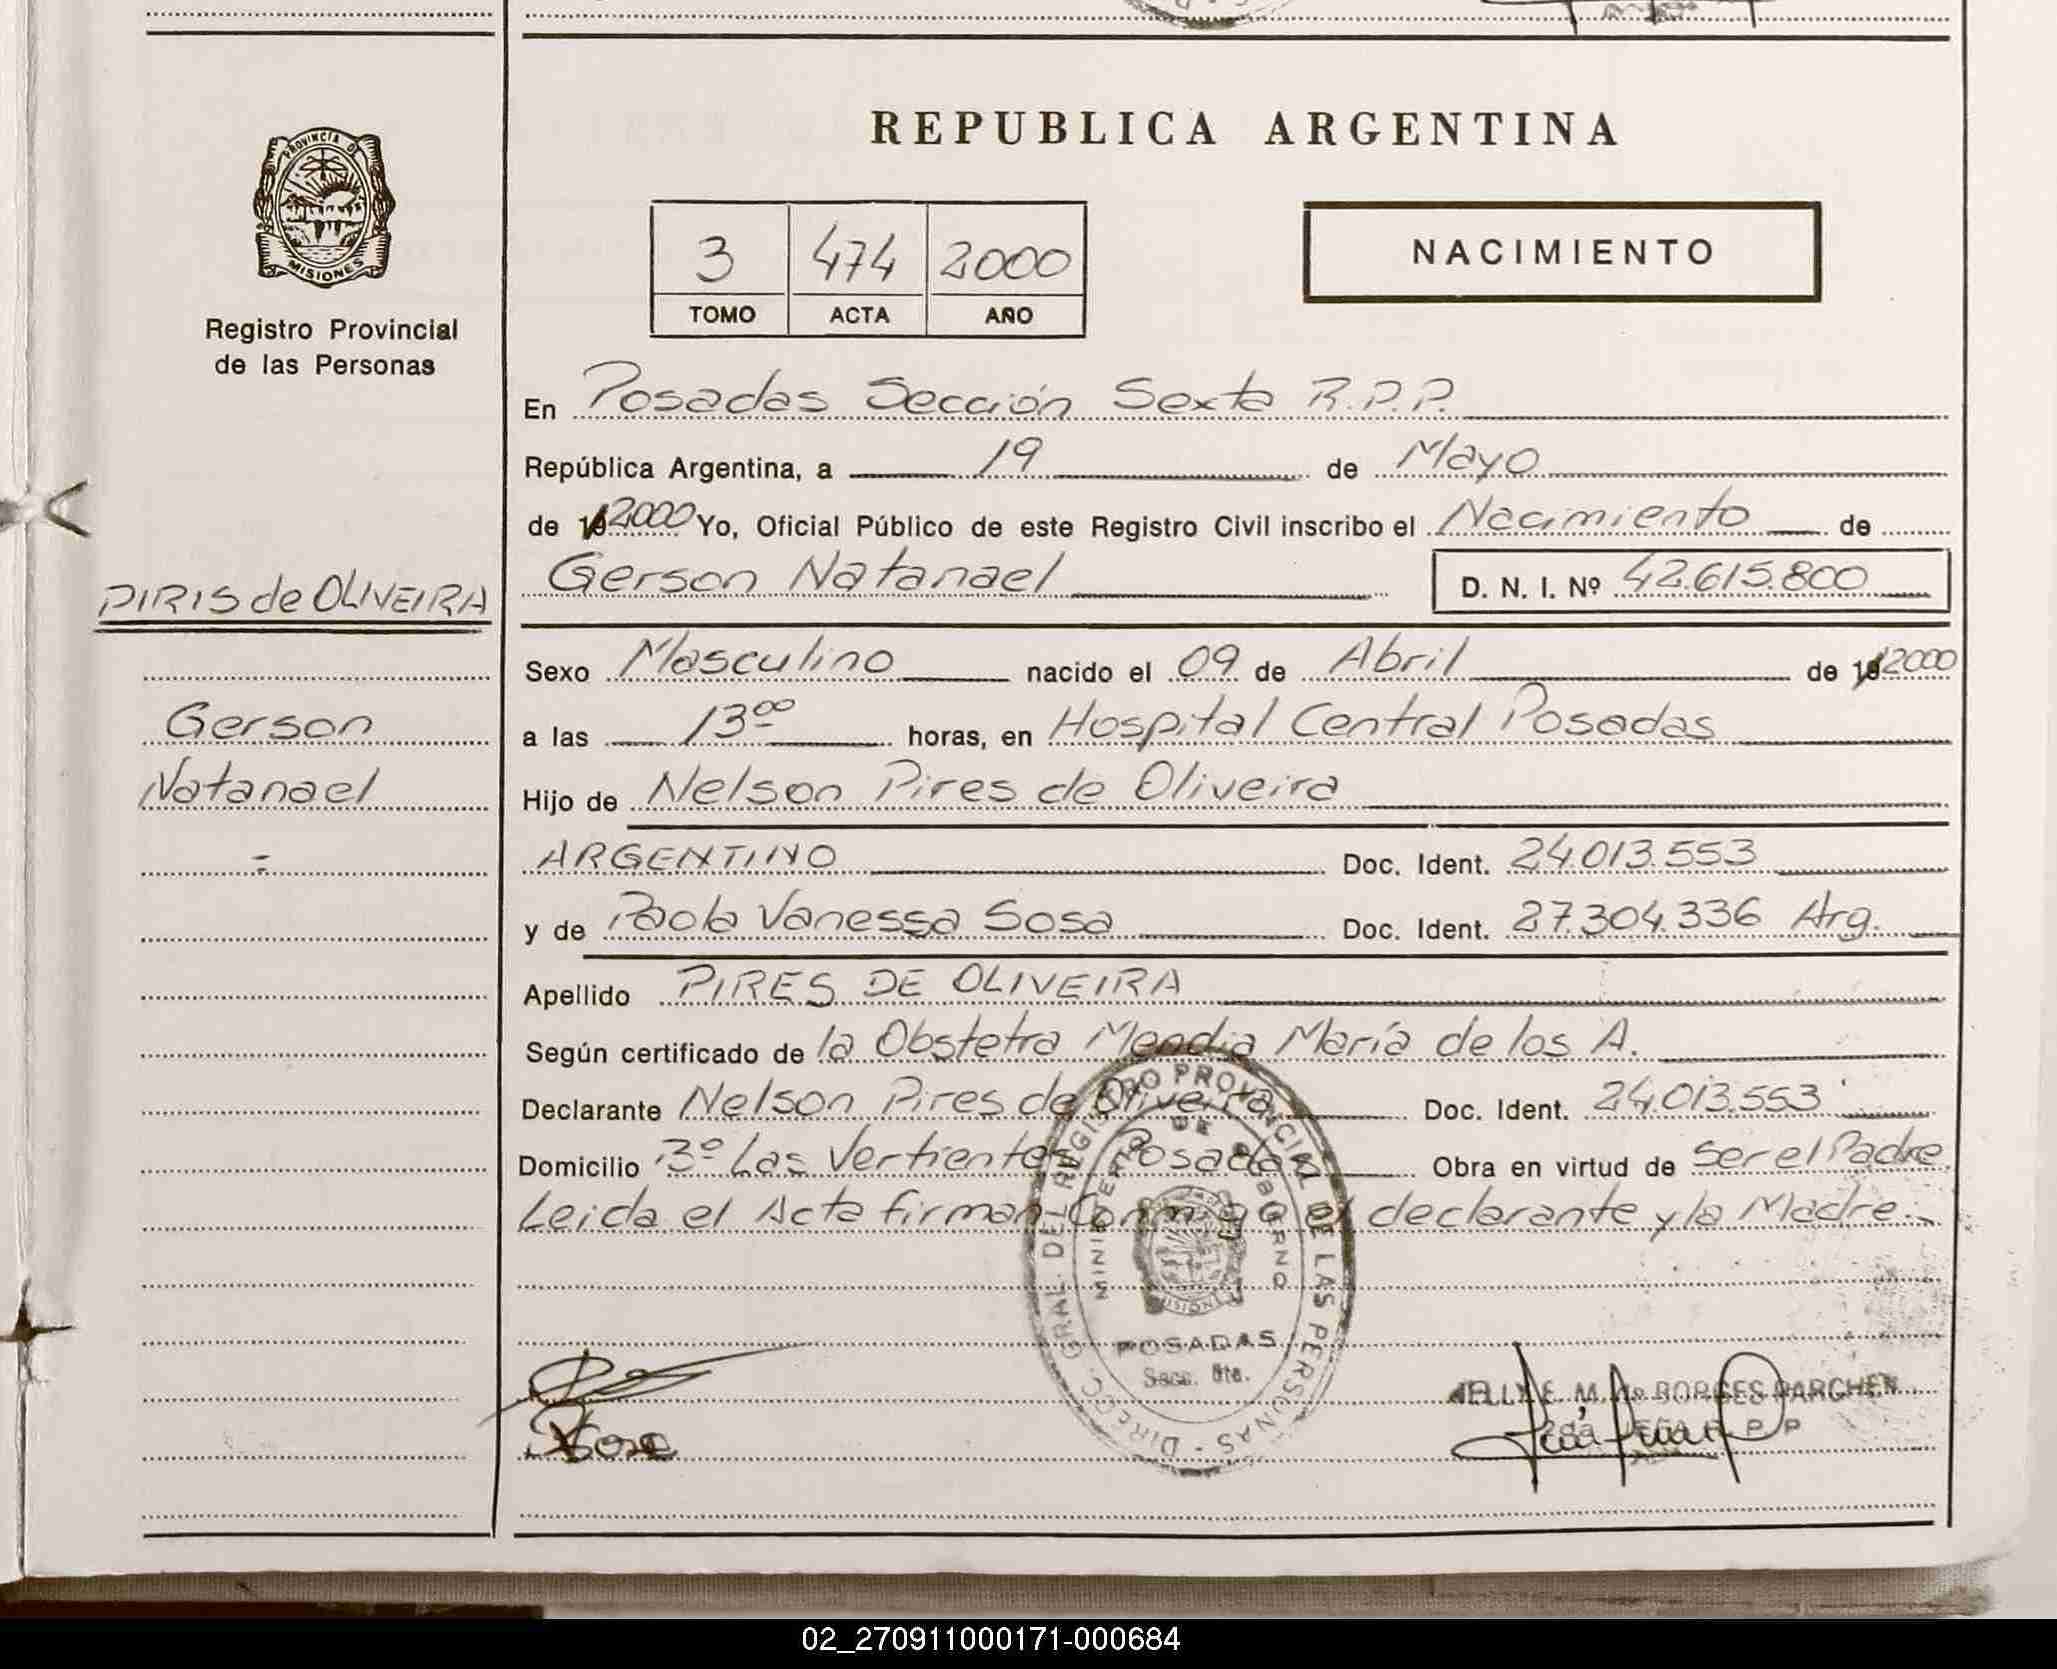 PROVINCIA DE
MISIONES
Registro Provincial
de las Personas
PIRIS de OLIVEIRA
Gerson
Natanael
REPUBLICA ARGENTINA
3 474 2000
TOMO ACTA AÑO
NACIMIENTO
En Posadas Sección Sexta R.P.P.
República Argentina, a 19 de Mayo
de 19 2000 Yo, Oficial Público de este Registro Civil inscribo el Nacimiento de
Gerson Natanael D. N. I. Nº 42.615.800
Sexo Masculino nacido el 09 de Abril de 19 2000
a las 13 00 horas, en Hospital Central Posadas
Hijo de Nelson Pires de Oliveira
ARGENTINO Doc. Ident. 24.013.553
y de Paola Vanessa Sosa Doc. Ident. 27.304.336 Arg.
Apellido PIRES DE OLIVEIRA
Según certificado de la Obstetra Mendia María de los A.
Declarante Nelson Pires de Oliveira Doc. Ident. 24.013.553
Domicilio Bº Las Vertientes Posadas Obra en virtud de ser el Padre
Leida el Acta firman Conmigo el declarante y la Madre.-
DIRECC. GRAL. DEL REGISTRO PROVINCIAL DE LAS PERSONAS
MINISTERIO DE GOBIERNO
MISIONES
POSADAS
Secc. 6ta.
BORGES PARCHEN
02_270911000171-000684